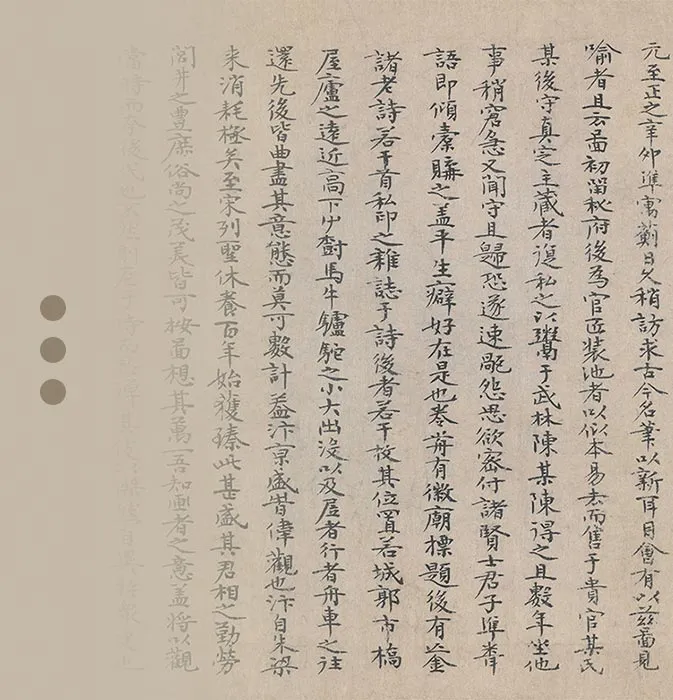 元至正之辛卯準寓薊日久稍訪求古今名筆以新耳目會有以兹啚見
喻者且云啚初留秘府後為官匠装池者以似本易去而售于貴官某氏
某後守真定主藏者復私之以鬻于武林陳某陳得之且數年坐他
事稍窘急又聞守且歸恐遂速怨思欲密付諸賢士君子準
語即傾橐購之盖平生癖好在是也卷前有徽廟標題後有金
諸老詩若干首私印之雜誌于詩後者若干枚其位置若城郭市橋
屋廬之遠近高下艸樹馬牛驢駝之小大出没以及居者行者舟車之往
還先後皆曲盡其意態而莫可數計葢汴京盛時偉觀也汴自朱梁
来消耗極矣至宋列聖休養百年始獲臻此甚盛其君相之勤勞
閭井之豊庶俗尚之茂美皆可按啚想其萬一吾知画者之意盖将以觀
當時而夸後代也